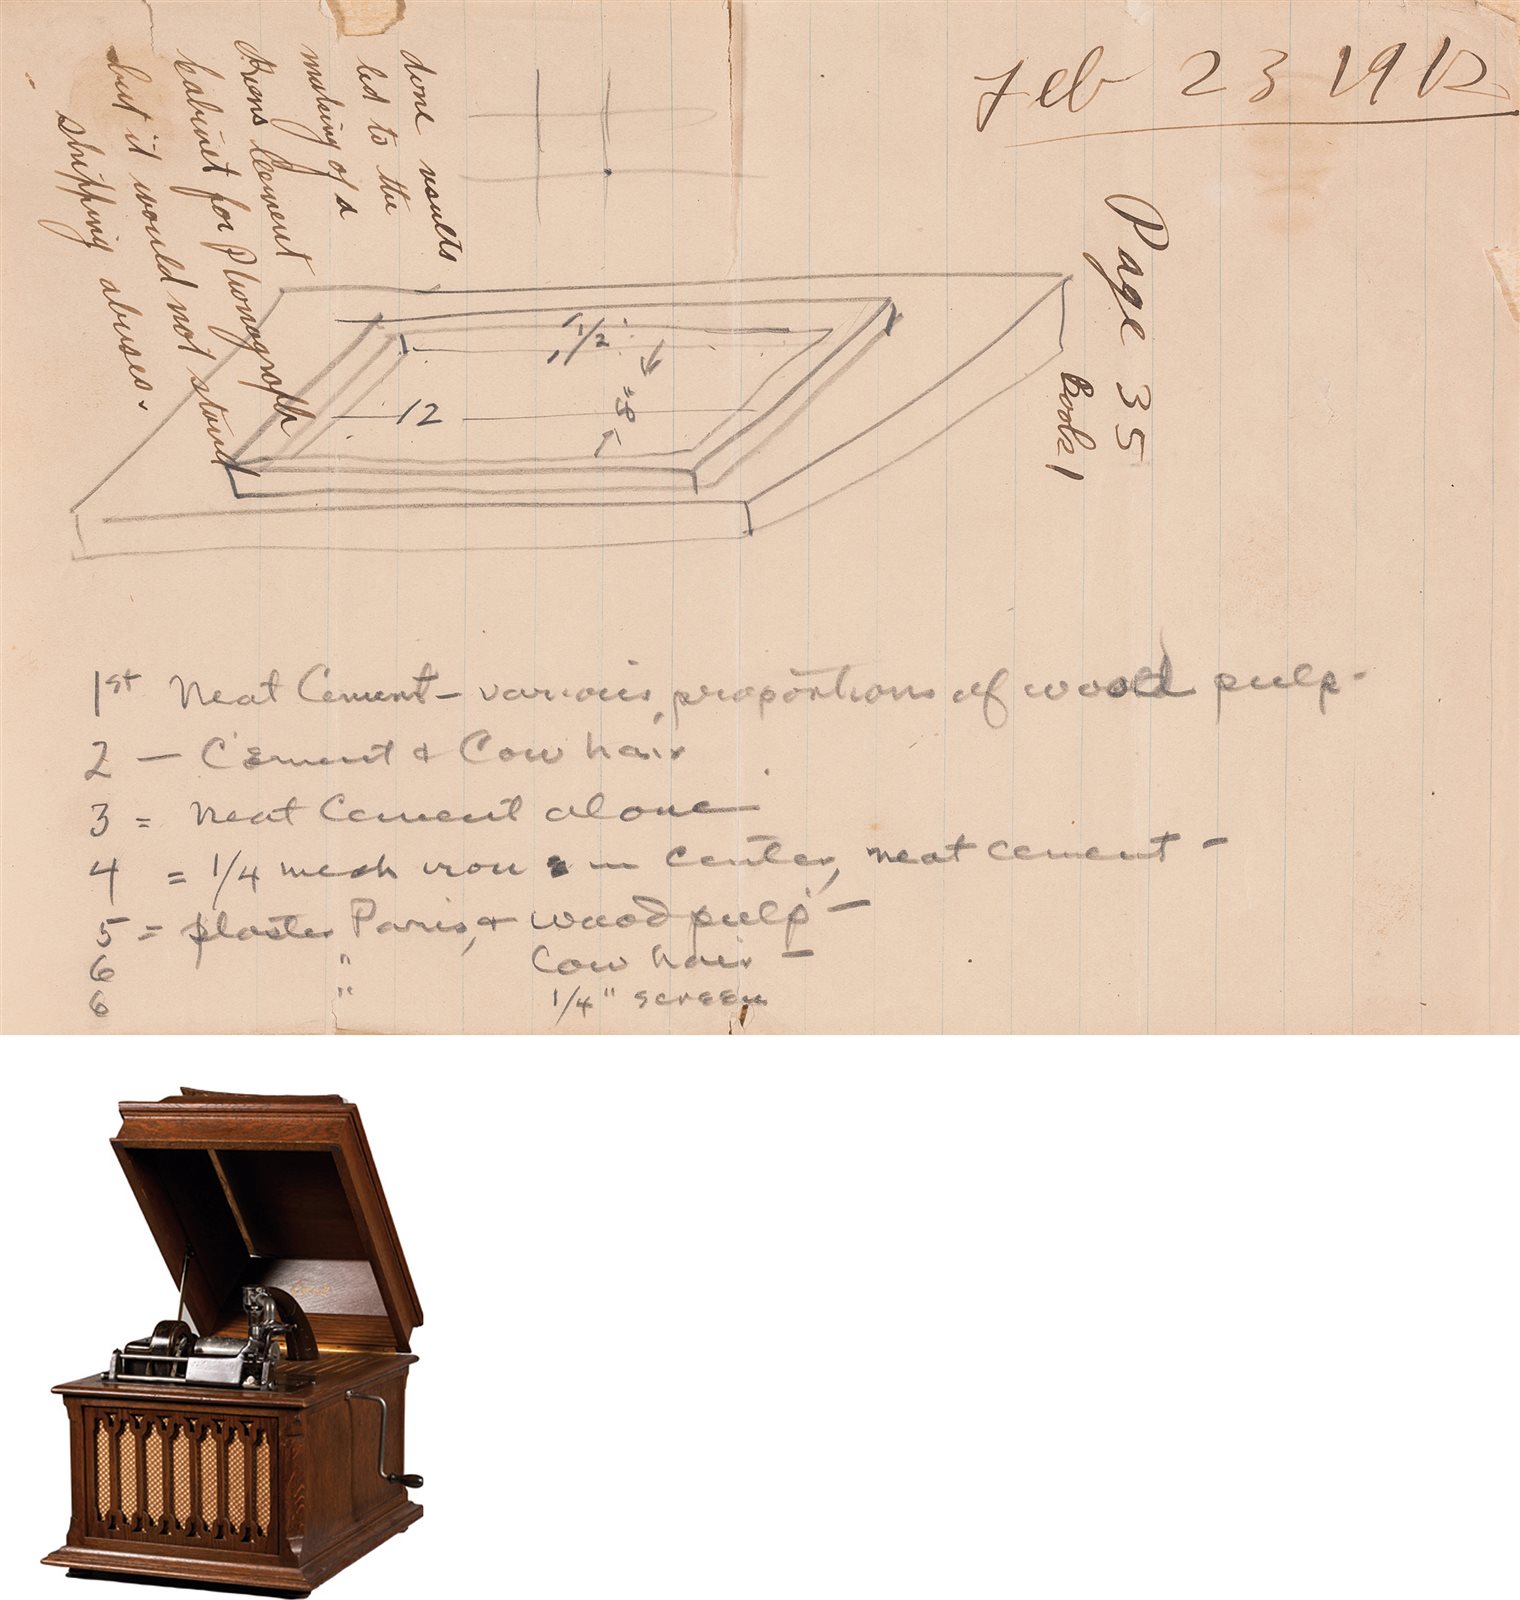 Feb 23 1912
Page 35
Book 1
done results
led to the
making of a
Cement
Cabinet for Phonograph
but it would not stand
shipping abuses.
1 1/2"
12
8"
1st Neat Cement - various proportions of wood pulp -
2 - Cement & Cow hair
3 = Neat Cement alone
4 = 1/4 mesh iron in center, neat cement -
5 = plaster Paris, & wood pulp -
6 " Cow hair -
6 " 1/4" screen